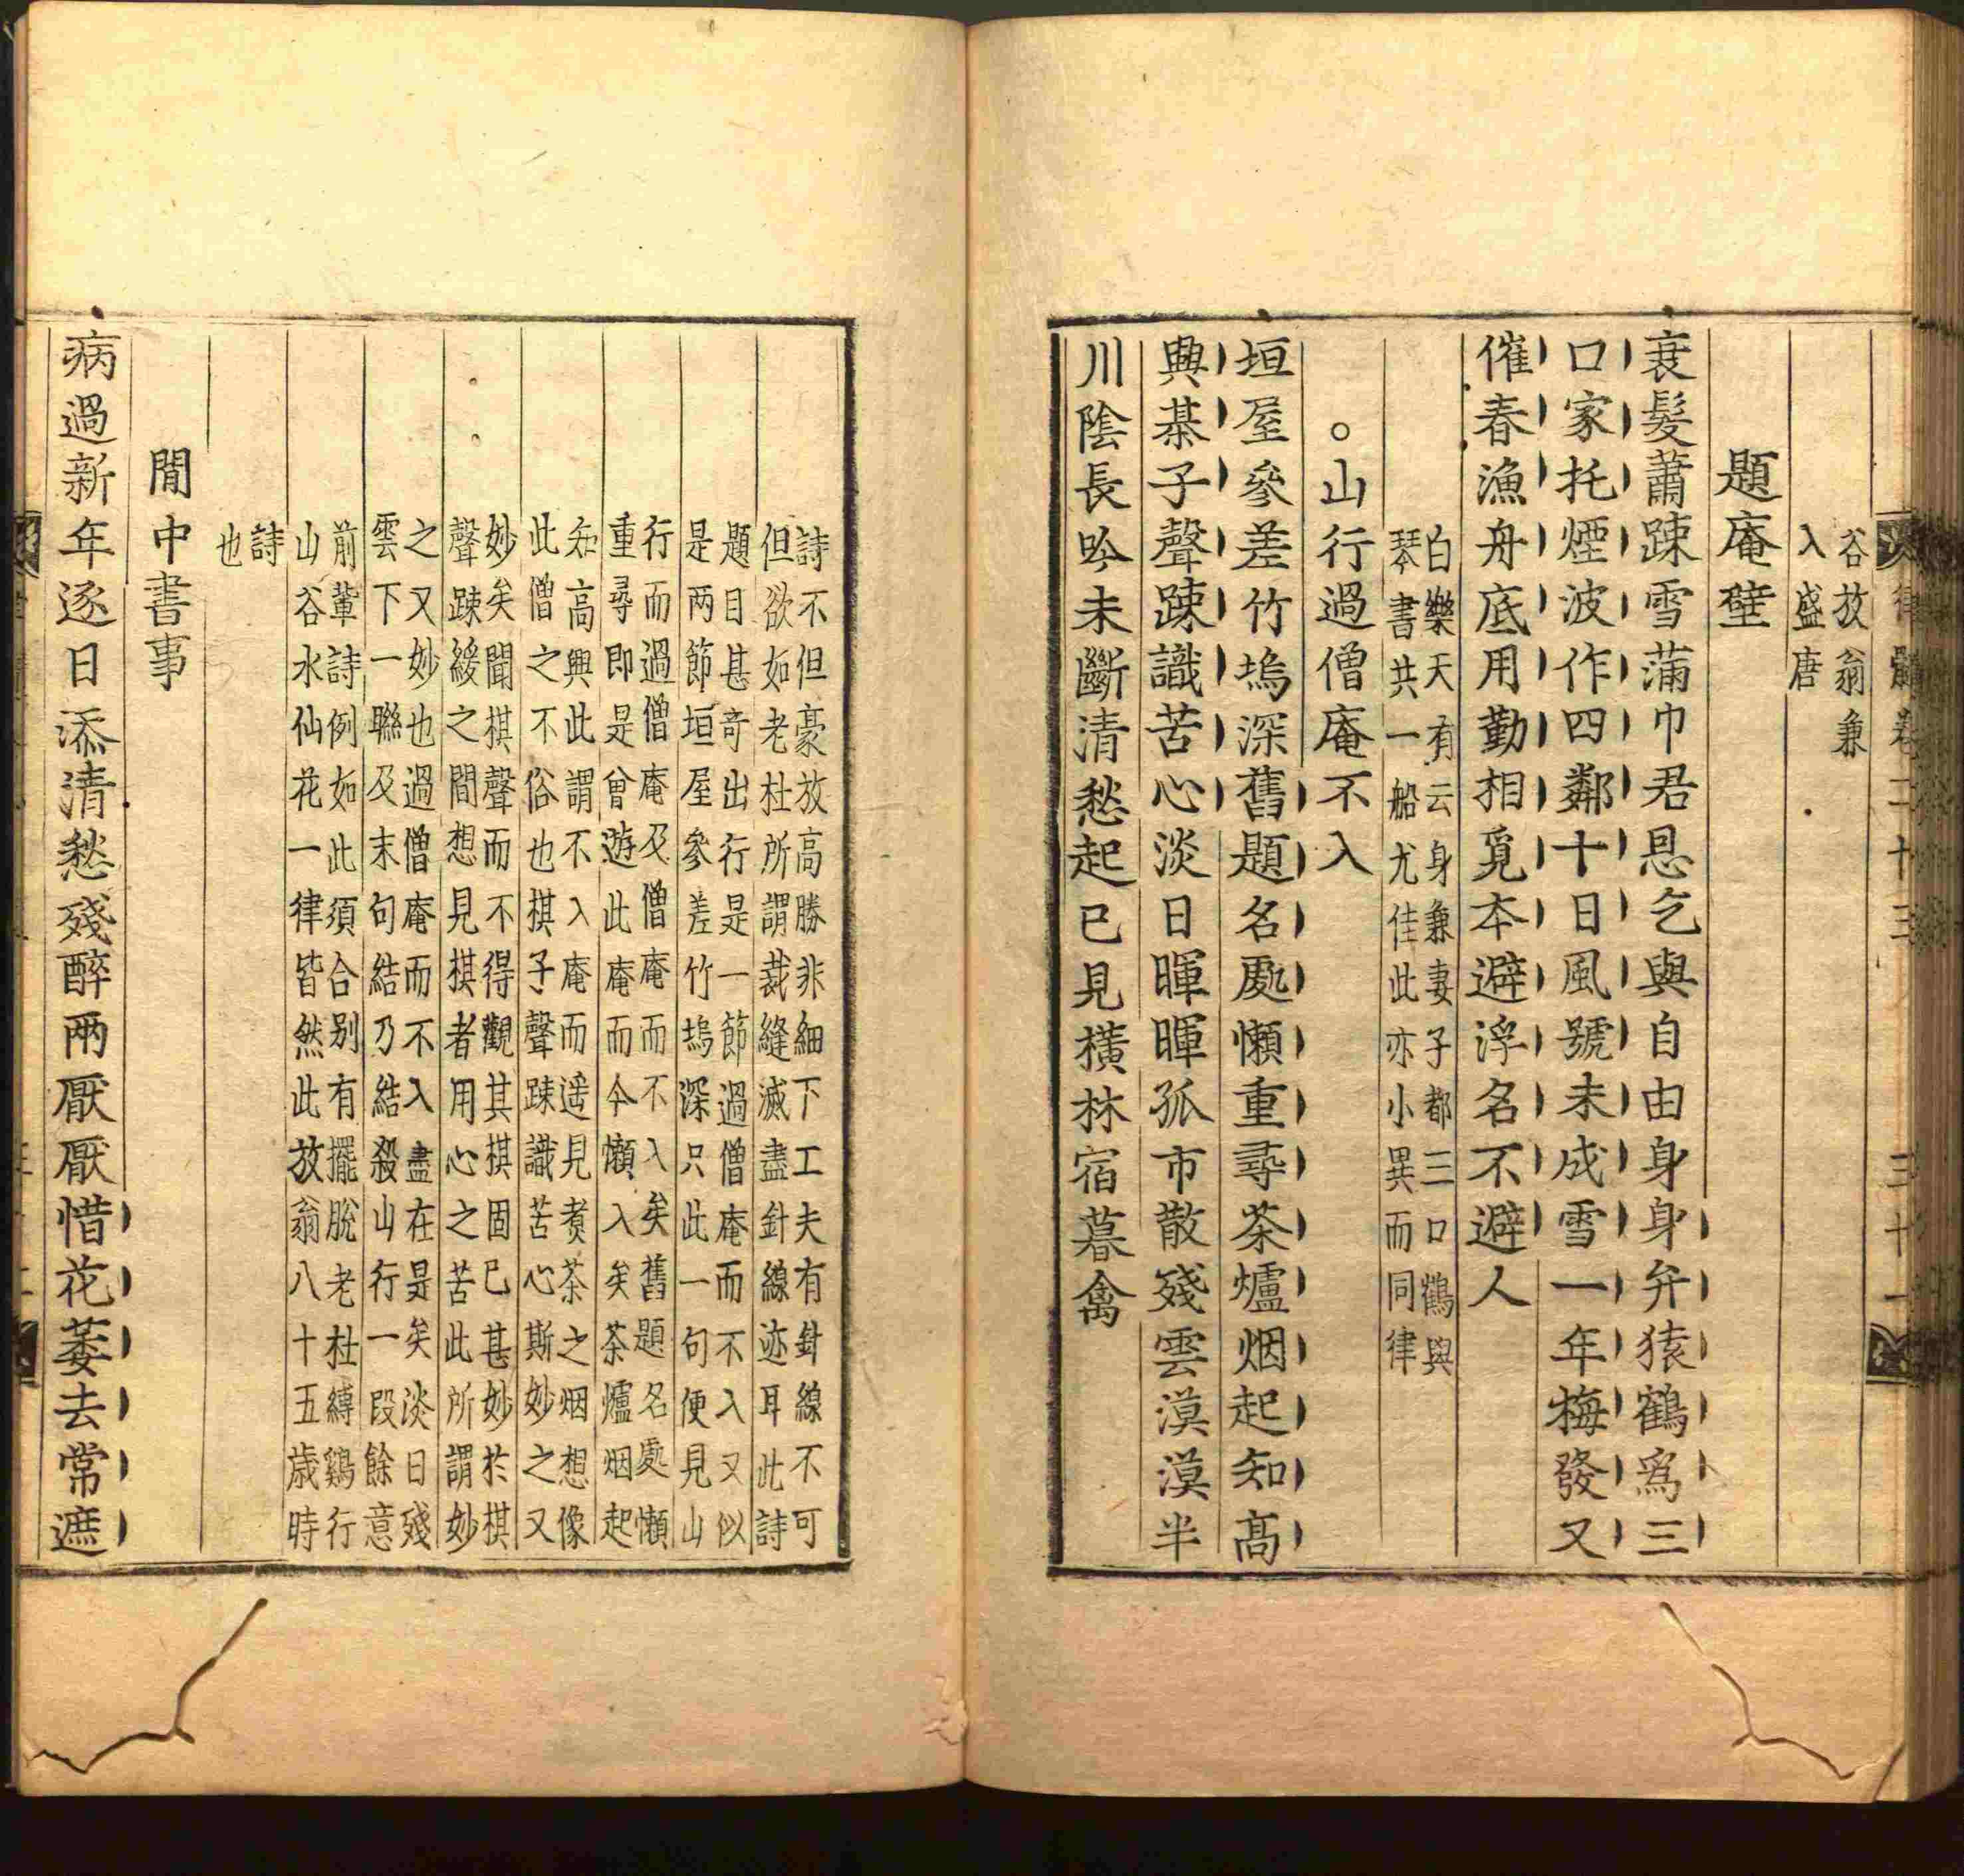 律髓卷二十三
三十一
谷放翁兼
入盛唐
題庵壁
衰髮蕭踈雪蒲巾君恩乞與自由身身弁猿鶴爲三
口家托煙波作四鄰十日風號未成雪一年梅發又
催春漁舟底用勤相覓本避浮名不避人
白樂天有云身兼妻子都三口鶴與
琴書共一船尤佳此亦小異而同律
○山行過僧庵不入
垣屋參差竹塢深舊題名處懶重尋茶爐烟起知高
興棊子聲踈識苦心淡日暉暉孤市散殘雲漠漠半
川陰長吟未斷清愁起已見橫林宿暮禽
詩不但豪放高勝非細下工夫有針線不可
但欲如老杜所謂裁縫滅盡針線迹耳此詩
題目甚竒出行是一節過僧庵而不入又似
是两節垣屋參差竹塢深只此一句便見山
行而過僧庵及僧庵而不入矣舊題名處懶
重尋即是曾遊此庵而今懶入矣茶爐烟起
知高興此謂不入庵而遥見煑茶之烟想像
此僧之不俗也棋子聲踈識苦心斯妙之又
妙矣聞棋聲而不得觀其棋固已甚妙於棋
聲踈緩之間想見棋者用心之苦此所謂妙
之又妙也過僧庵而不入盡在是矣淡日殘
雲下一聯及末句結乃結殺山行一段餘意
前輩詩例如此須合别有擺脫老杜縛鷄行
山谷水仙花一律皆然此放翁八十五歳時
詩
也
閒中書事
病過新年逐日添清愁殘醉两厭厭惜花萎去常遮